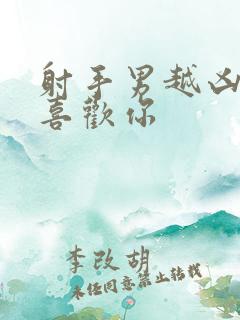 射手男越凶
喜歡你
李改胡
未经同意禁止转载